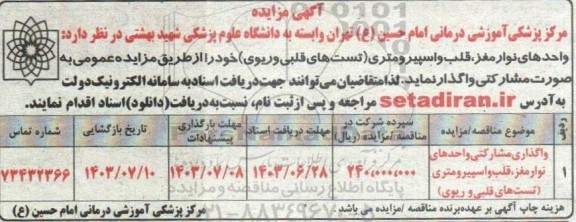 آگهی مزایده
مرکز پزشکی آموزشی درمانی امام حسین (ع) تهران وابسته به دانشگاه علوم پزشکی شهید بهشتی در نظر دارد:
واحدهای نوار مغز، قلب و اسپیرومتری (تست‌های قلبی و ریوی) خود را از طریق مزایده عمومی به
صورت مشارکتی واگذار نماید. لذا متقاضیان می‌توانند جهت دریافت اسناد به سامانه الکترونیک دولت
به آدرس setadiran.ir مراجعه و پس از ثبت نام، نسبت به دریافت (دانلود) اسناد اقدام نمایند.
ردیف | موضوع مناقصه/مزایده | سپرده شرکت در مناقصه/مزایده (ریال) | مهلت دریافت اسناد | مهلت بارگذاری پیشنهادات | تاریخ بازگشایی | شماره تماس
۱ | واگذاری مشارکتی واحدهای نوار مغز، قلب و اسپیرومتری (تست‌های قلبی و ریوی) | ۲۴۰,۰۰۰,۰۰۰ | ۱۴۰۳/۰۶/۲۸ | ۱۴۰۳/۰۷/۰۸ | ۱۴۰۳/۰۷/۱۰ | ۷۳۴۳۲۳۶۶
هزینه چاپ آگهی بر عهده برنده مناقصه /مزایده می باشد.
مرکز پزشکی آموزشی درمانی امام حسین (ع)